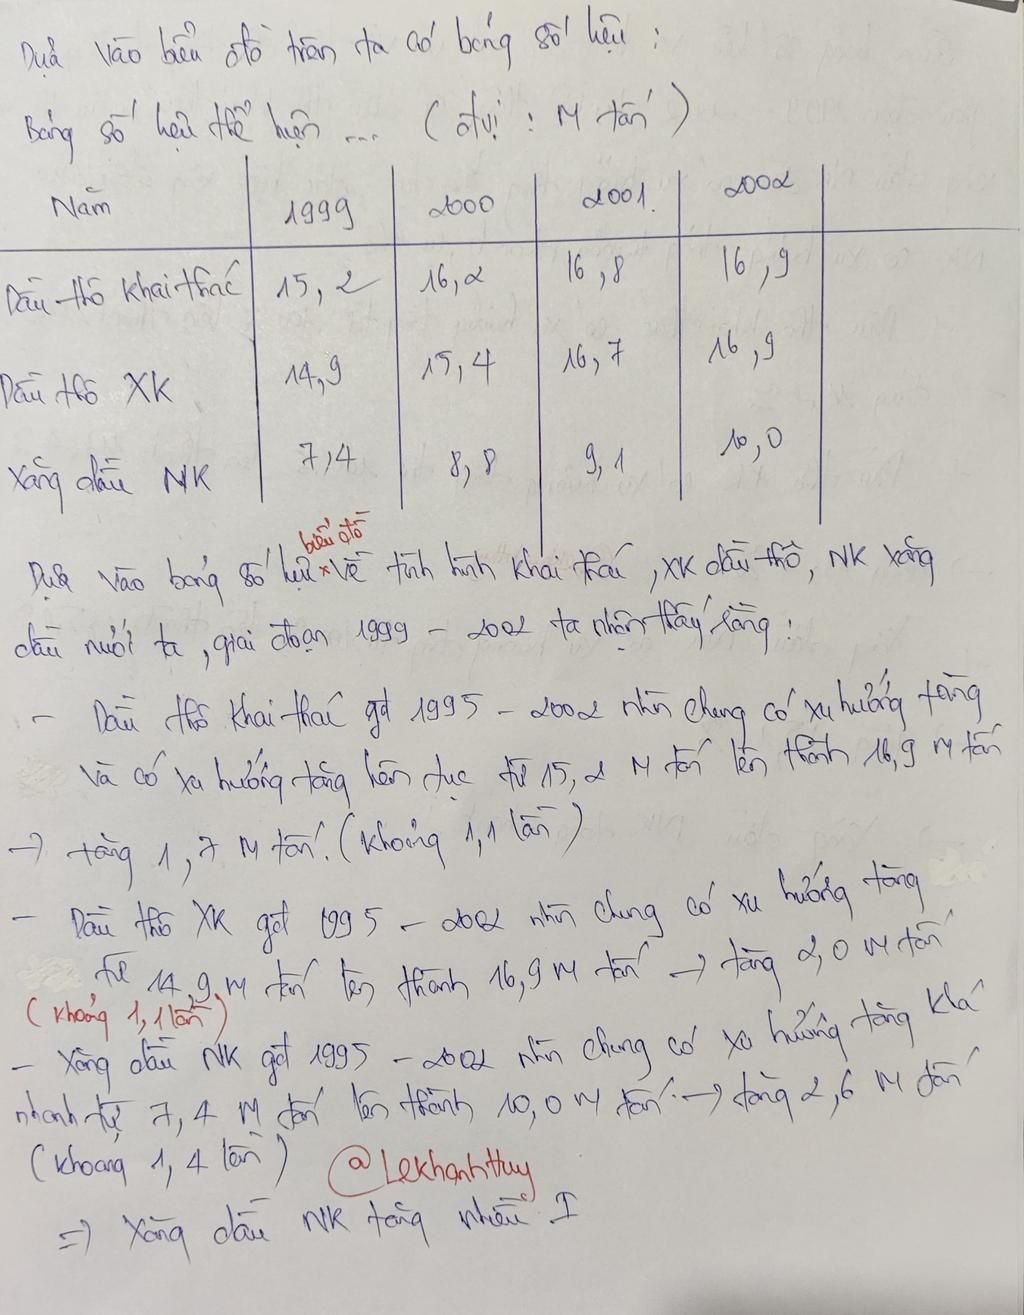 Dựa vào biểu đồ trên ta có bảng số liệu :
Bảng số liệu thể hiện ... ( đvị : M tấn )
Năm 1999 2000 2001. 2002
Dầu thô khai thác 15,2 16,2 16,8 16,9
Dầu thô XK 14,9 15,4 16,7 16,9
Xăng dầu NK 7,4 8,8 9,1 10,0
biểu đồ
Dựa vào bảng số liệu × vẽ tình hình khai thác, XK dầu thô, NK xăng
dầu nước ta, giai đoạn 1999 - 2002 ta nhận thấy rằng :
- Dầu thô khai thác gđ 1995 - 2002 nhìn chung có xu hướng tăng
và có xu hướng tăng liên tục từ 15,2 M tấn lên thành 16,9 M tấn
-> tăng 1,7 M tấn. (khoảng 1,1 lần)
- Dầu thô XK gđ 1995 - 2002 nhìn chung có xu hướng tăng
từ 14,9 M tấn lên thành 16,9 M tấn -> tăng 2,0 M tấn
(khoảng 1,1 lần)
- Xăng dầu NK gđ 1995 - 2002 nhìn chung có xu hướng tăng khá
nhanh từ 7,4 M tấn lên thành 10,0 M tấn. -> tăng 2,6 M tấn
(khoảng 1,4 lần)
@Lekhanhthuy
=> Xăng dầu NK tăng nhiều I